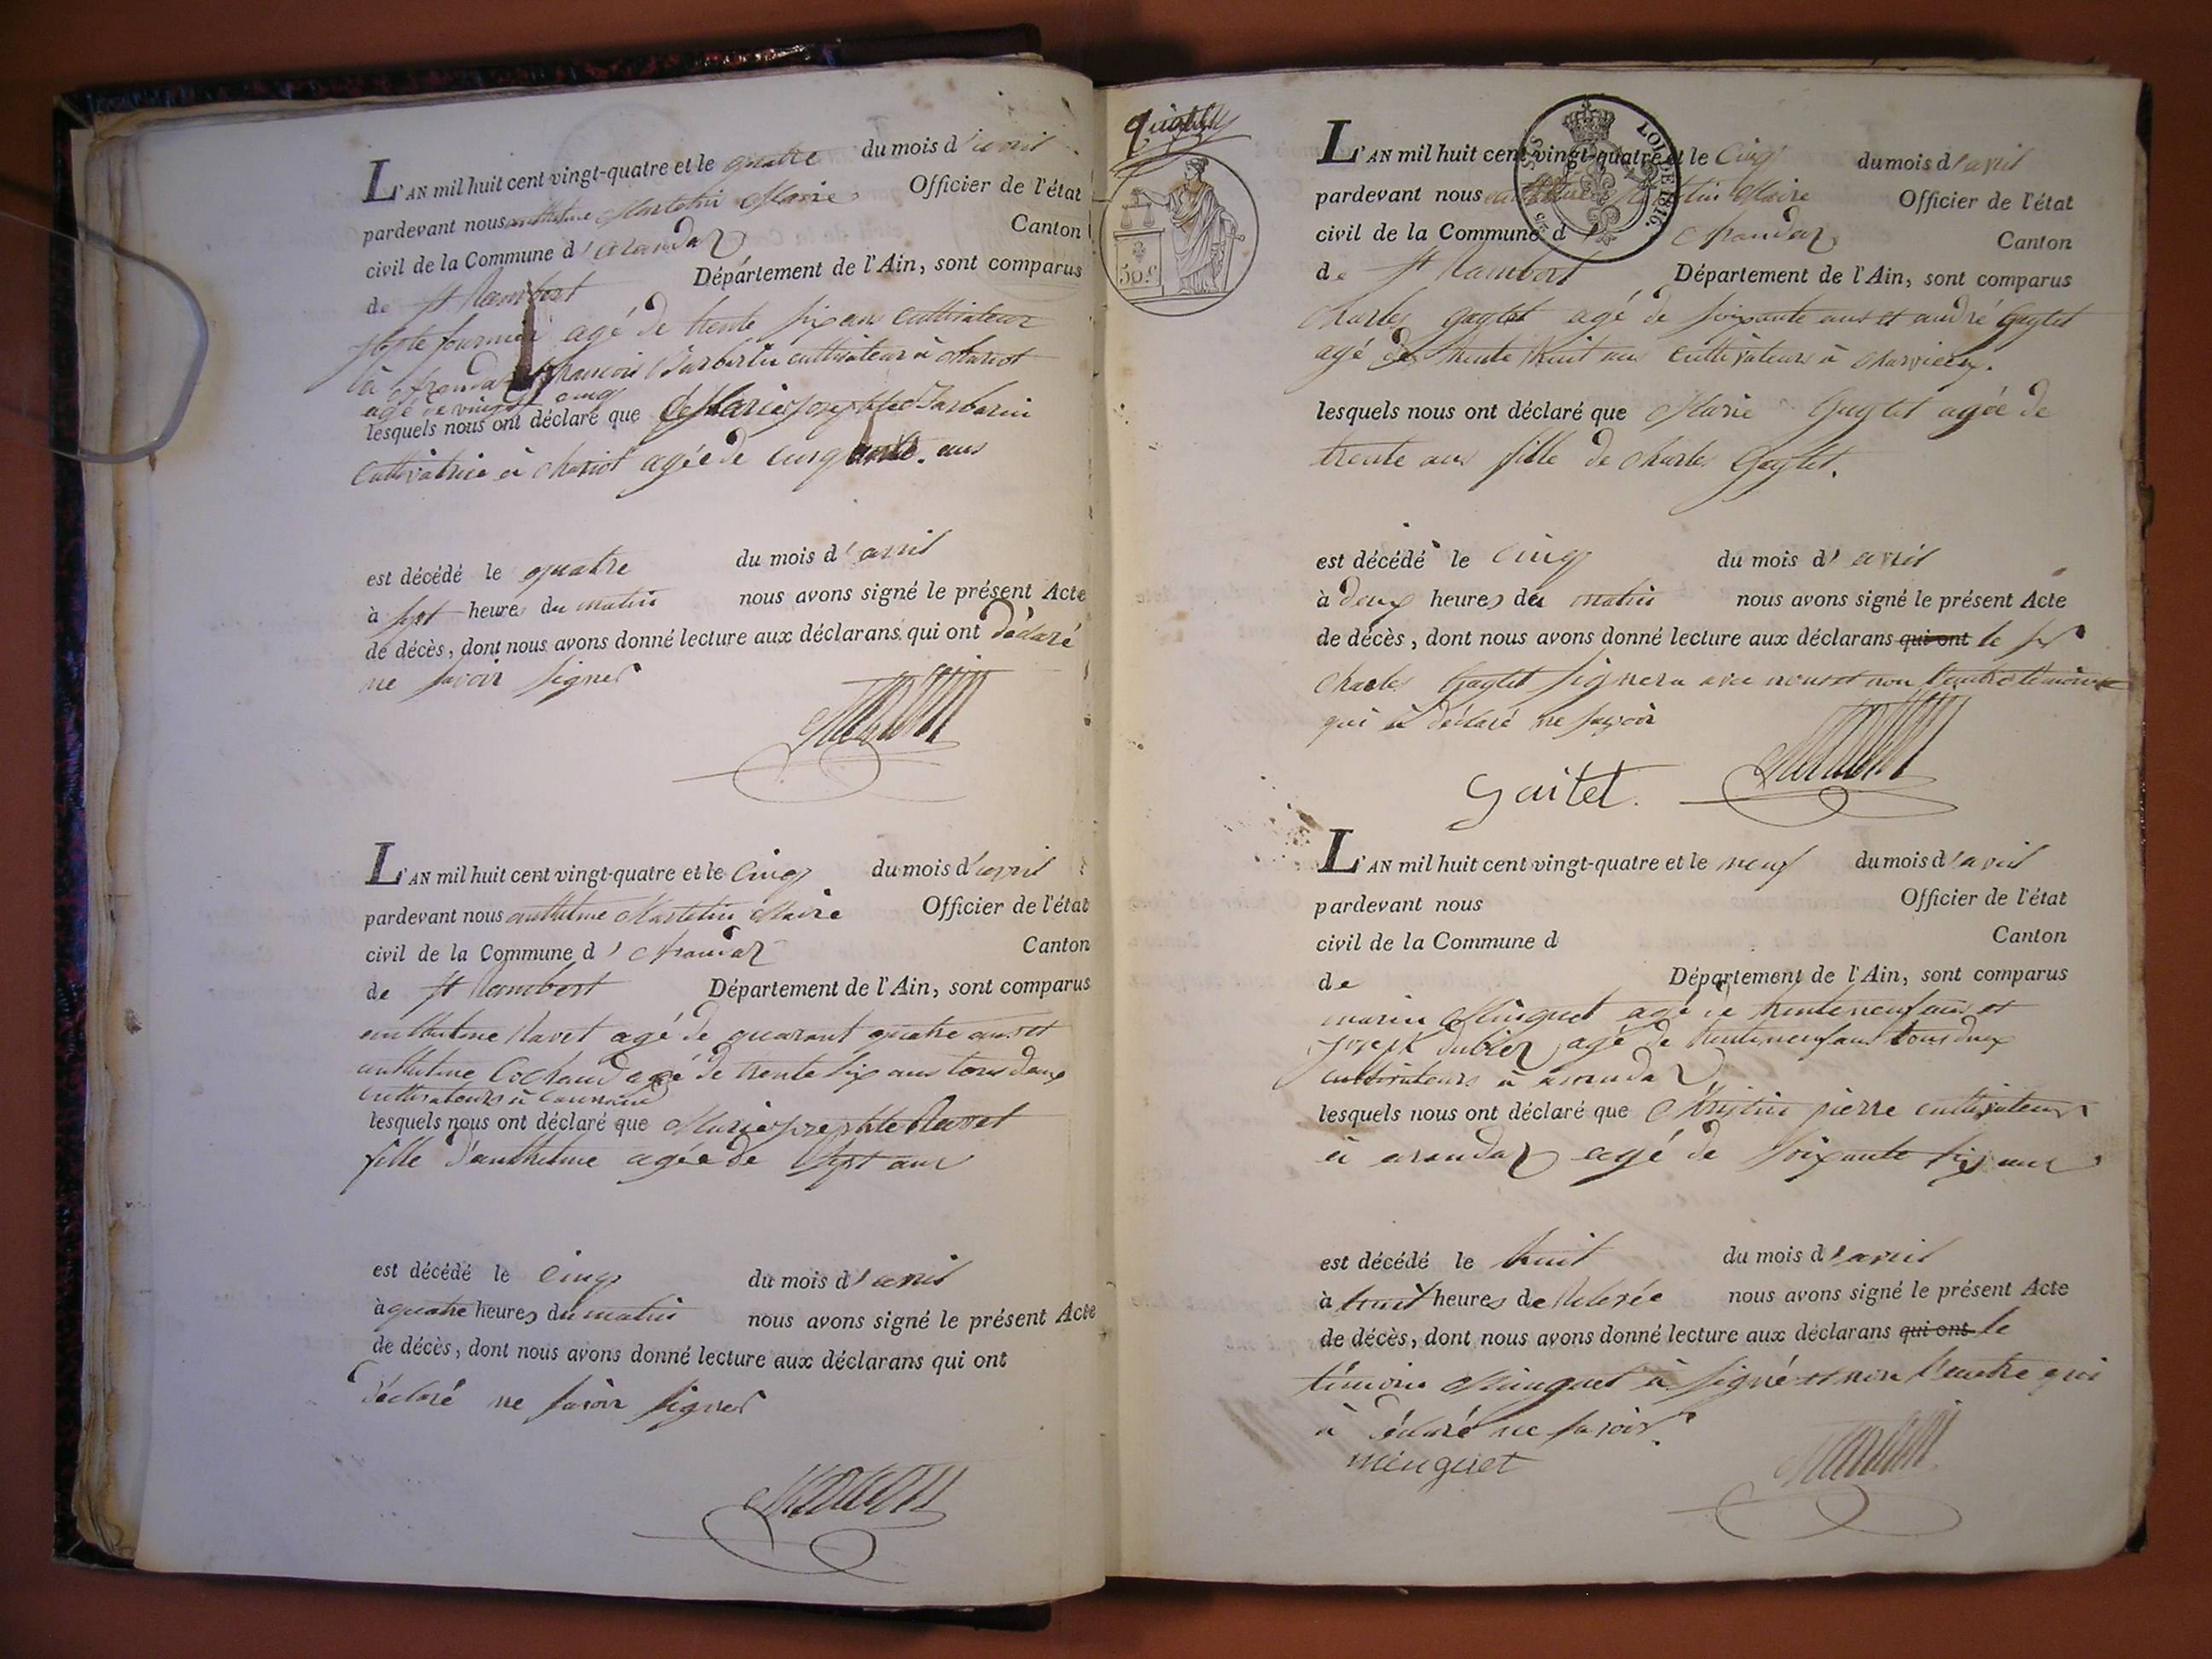 L'AN mil huit cent vingt-quatre et le quatre du mois d'avril
pardevant nous anthelme Martelin Maire Officier de l'état
civil de la Commune d'arandaz Canton
de St Rambert Département de l'Ain, sont comparus
fournier agé de trente six ans cultivateur
à arandaz françois Barbarin cultivateur à
agé de vingt cinq
lesquels nous ont déclaré que Marie josephte Barbarin
cultivatrice à agée de cinquante ans
est décédé le quatre du mois d'avril
à sept heures du matin nous avons signé le présent Acte
de décès, dont nous avons donné lecture aux déclarans qui ont déclaré
ne savoir signer
L'AN mil huit cent vingt-quatre et le cinq du mois d'avril
pardevant nous anthelme Martelin Maire Officier de l'état
civil de la Commune d'arandaz Canton
de St Rambert Département de l'Ain, sont comparus
anthelme Ravet agé de quarant quatre ans et
anthelme Cochaud agé de trente six ans tous deux
cultivateurs à
lesquels nous ont déclaré que Marie josephte Ravet
fille d'anthelme agée de sept ans
est décédé le cinq du mois d'avril
à quatre heures du matin nous avons signé le présent Acte
de décès, dont nous avons donné lecture aux déclarans qui ont
déclaré ne savoir signer
50 c.
LOI DE 1816
L'AN mil huit cent vingt-quatre et le cinq du mois d'avril
pardevant nous anthelme Martelin Maire Officier de l'état
civil de la Commune d'arandaz Canton
de St Rambert Département de l'Ain, sont comparus
charles Gaytet agé de soixante ans et andré Gaytet
agé de trente huit ans cultivateurs à
lesquels nous ont déclaré que Marie Gaytet agée de
trente ans fille de charles Gaytet.
est décédé le cinq du mois d'avril
à deux heures du matin nous avons signé le présent Acte
de décès, dont nous avons donné lecture aux déclarans qui ont le sr
charles Gaytet signera avec nous et non l'autre témoin
qui à déclaré ne savoir
Gaitet.
L'AN mil huit cent vingt-quatre et le neuf du mois d'avril
pardevant nous Officier de l'état
civil de la Commune d Canton
de Département de l'Ain, sont comparus
marin Minguet agé de trente neuf ans et
joseph dubiez agé de trente neuf ans tous deux
cultivateurs à arandaz
lesquels nous ont déclaré que pierre cultivateur
à arandaz agé de soixante six ans
est décédé le huit du mois d'avril
à huit heures de Relevée nous avons signé le présent Acte
de décès, dont nous avons donné lecture aux déclarans qui ont le
témoin Minguet à signé et non l'autre qui
à déclaré ne savoir
minguet